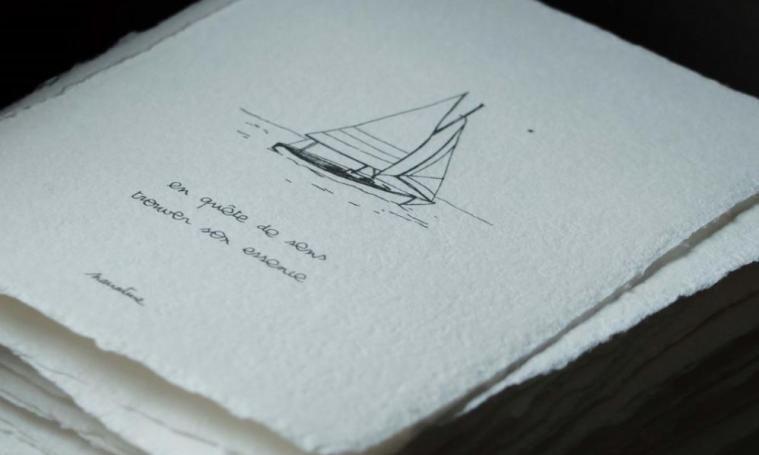 en quête de sens
trouver son essence